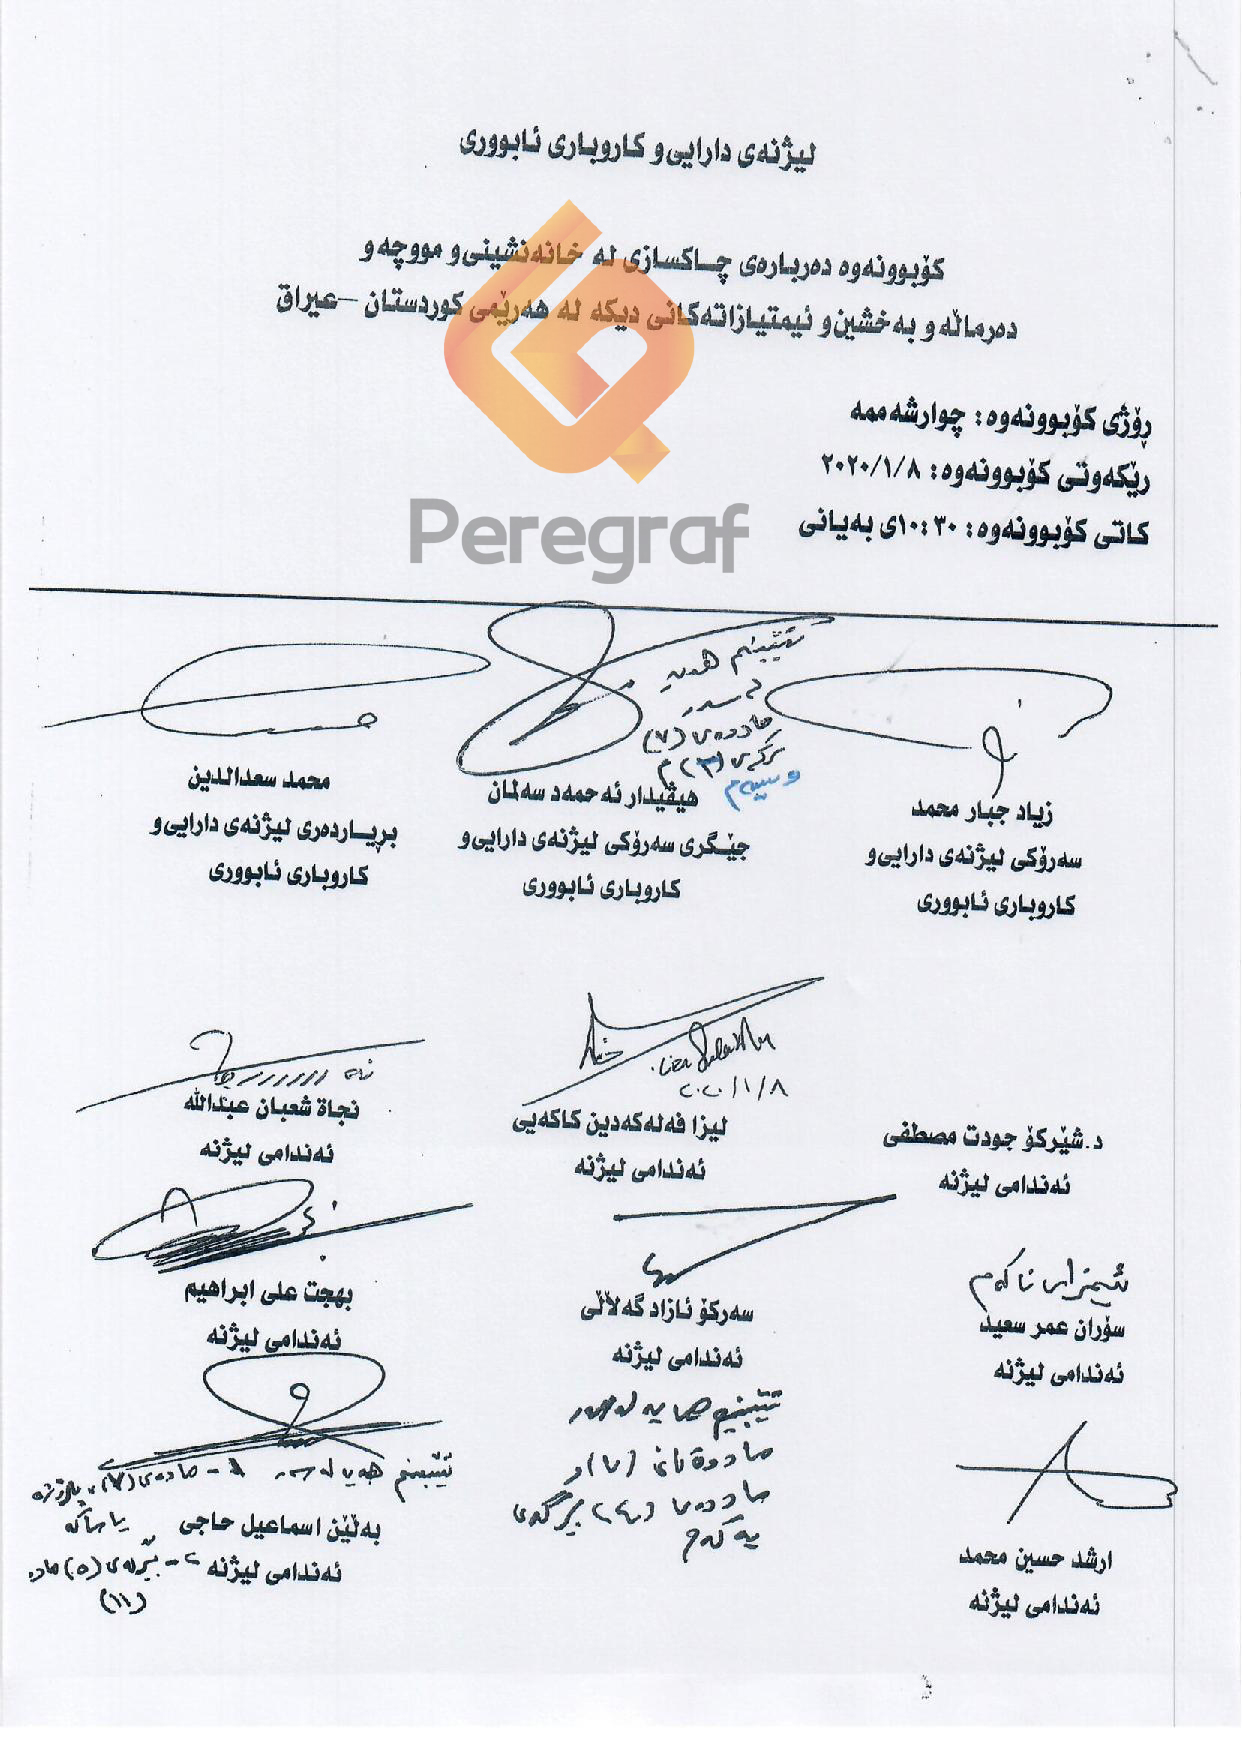 لیژنەی دارایی و کاروباری ئابووری
کۆبوونەوە دەربارەی چاکسازی لە خانەنشینی و مووچە و
دەرماڵە و بەخشین و ئیمتیازاتەکانی دیکە لە هەرێمی کوردستان – عیراق
ڕۆژی کۆبوونەوە: چوارشەممە
ڕێکەوتی کۆبوونەوە: ٢٠٢٠/١/٨
کاتی کۆبوونەوە: ١٠:٣٠ی بەیانی
Peregraf
تێبینیم هەیە
لە سەر
ماددەی (٧)
بڕگەی (٣)
زیاد جبار محمد
سەرۆکی لیژنەی دارایی و
کاروباری ئابووری
هێڤیدار ئەحمەد سەلمان
جێگری سەرۆکی لیژنەی دارایی و
کاروباری ئابووری
محمد سعدالدین
بڕیاردەری لیژنەی دارایی و
کاروباری ئابووری
د.شێرکۆ جودت مصطفی
ئەندامی لیژنە
٢٠٢٠/١/٨
لیزا فەلەکەدین کاکەیی
ئەندامی لیژنە
نجاة شعبان عبدالله
ئەندامی لیژنە
ئیمزای ناکەم
سۆران عمر سعید
ئەندامی لیژنە
سەرکۆ ئازاد گەڵاڵی
ئەندامی لیژنە
تێبینیم هەیە لەسەر
ماددەی
یەکەم
بهجت علی ابراهیم
ئەندامی لیژنە
ارشد حسین محمد
ئەندامی لیژنە
تێبینیم هەیە لەسەر ١- مادەی (٧)
یاساکە
بەڵێن اسماعیل حاجی
ئەندامی لیژنە
٢- بڕگەی (٥) مادە
(١١)